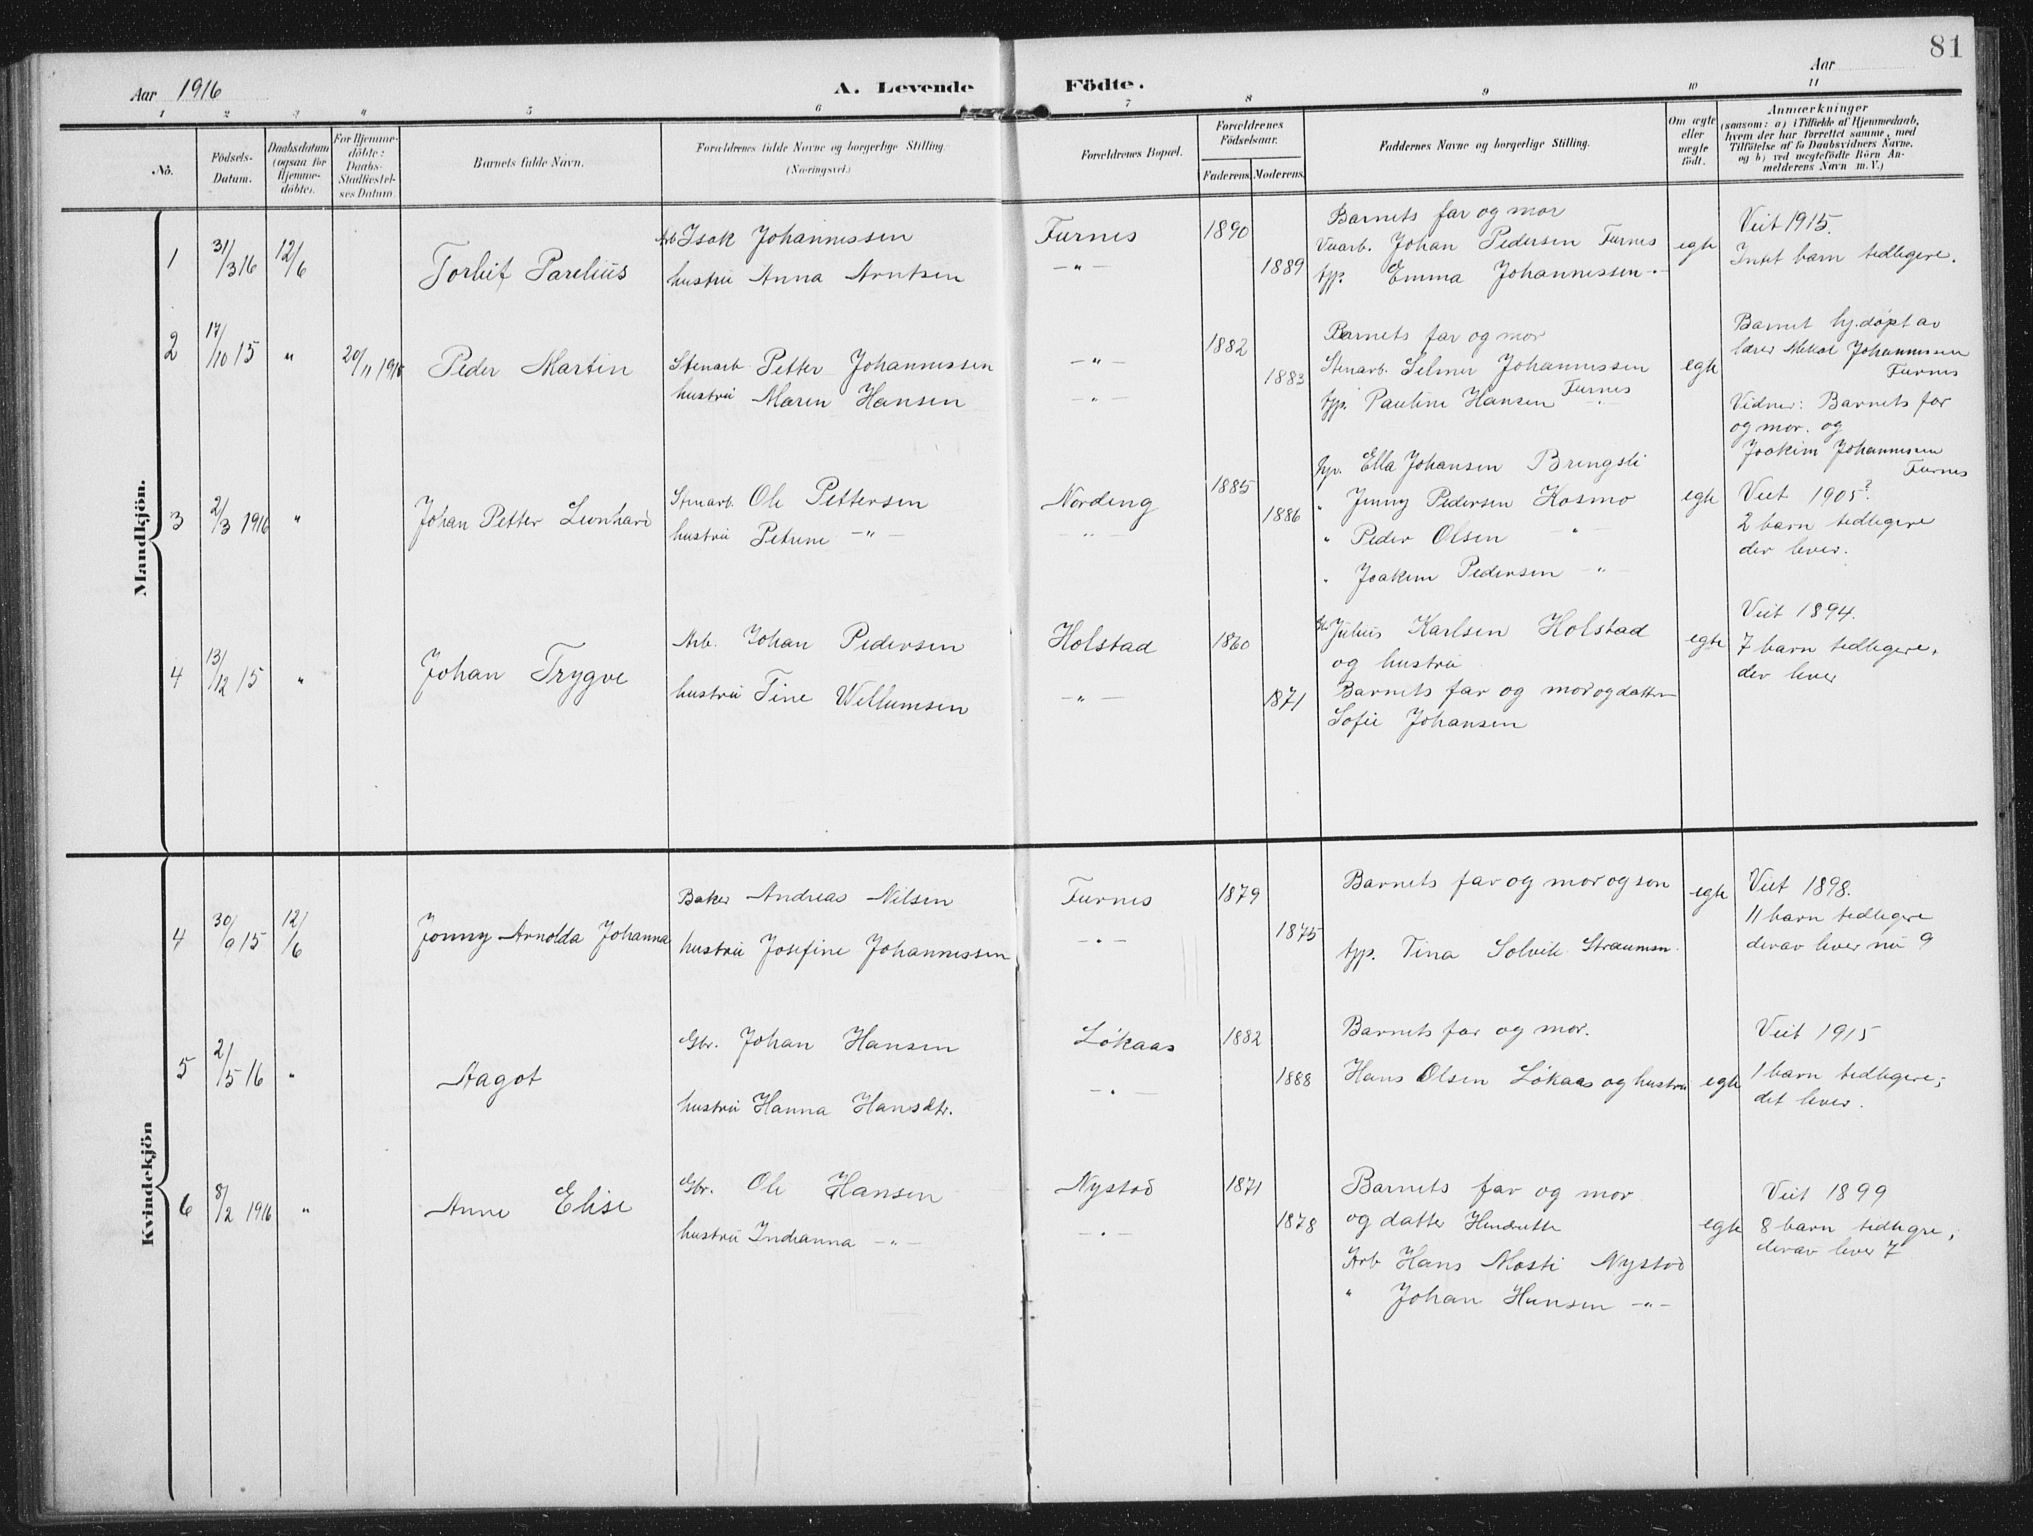 81
Aar 1916
A. Levende Födte.
Aar
1 2 3 4 5 6 7 8 9 10 11
No.
Födsels-
Datum.
Daabsdatum
(ogsaa for
Hjemme-
döbte).
For Hjemme-
döbte:
Daabs-
Stadfæstel-
ses Datum
Barnets fulde Navn.
Forældrenes fulde Navne og borgerlige Stilling.
(Næringsvei.)
Forældrenes Bopæl.
Forældrenes
Födselsaar.
Faderens. Moderens.
Faddernes Navne og borgerlige Stilling.
Om ægte
eller
uægte
födt.
Anmærkninger
(saasom: a) i Tilfælde af Hjemmedaab,
hvem der har forrettet samme, med
Tilföielse af to Daabsvidners Navne.
og b) ved uægtefödte Börn An-
melderens Navn m. V.)
Mandkjön.
1 31/3 16 12/6 Torleif Parelius
Arb Isak Johannessen
hustru Anna Arntsen
Furnes
-"-
1890
1889
Barnets far og mor
Johan Pedersen Furnes
tjp. Emma Johannessen -"-
egte
Viet 1915.
Intet barn tidligere.
2 17/10 15 " 20/11 1915 Peder Martin
Stenarb. Petter Johannessen
hustru Maren Hansen
-"-
-"-
1882
1883
Barnets far og mor
Stenarb. Selmer Johannessen
Furnes
tjp. Pauline Hansen -"-
egte
Barnet hj.døpt av
lærer Mekal Johannessen
Furnes
Vidner: Barnets far
og mor. og
Joakim Johannessen
Furnes
3 2/3 1916 " Johan Petter Leonhard
Stenarb. Ole Pettersen
hustru Petrine -"-
Nordeng
-"-
1885
1886
tjp. Ella Johansen Bringsli
" Jenny Pedersen Kosmo
" Peder Olsen -"-
" Joakim Pedersen -"-
egte
Viet 1905?
2 barn tidligere
der lever.
4 13/12 15 " Johan Trygve
Arb. Johan Pedersen
hustru Tine Willumsen
Holstad
-"-
1860
1871
Julius Karlsen Holstad
og hustru
Barnets far og mor og datter
Sofie Johansen
egte
Viet 1894.
7 barn tidligere.
der lever
Kvindekjön
4 30/9 15 12/6 Jonny Arnolda Johanna
Baker Andreas Nilsen
hustru Josefine Johannessen
Furnes
-"-
1879
1875
Barnets far og mor og søn
tjp. Tina Solvik Straumsn.
egte
Viet 1898.
11 barn tidligere
derav lever nu 9
5 2/5 16 " Aagot
Gbr. Johan Hansen
hustru Hanna Hansdtr.
Løkaas
-"-
1882
1888
Barnets far og mor.
Hans Olsen Løkaas og hustru
egte
Viet 1915
1 barn tidligere;
det lever.
6 8/2 1916 " Anne Elise
Gbr. Ole Hansen
hustru Indianna -"-
Nystad
-"-
1871
1878
Barnets far og mor
og datter Hendrette
Arb Hans Mosti Nystad
" Johan Hansen -"-
egte
Viet 1899
8 barn tidligre;
derav lever 7